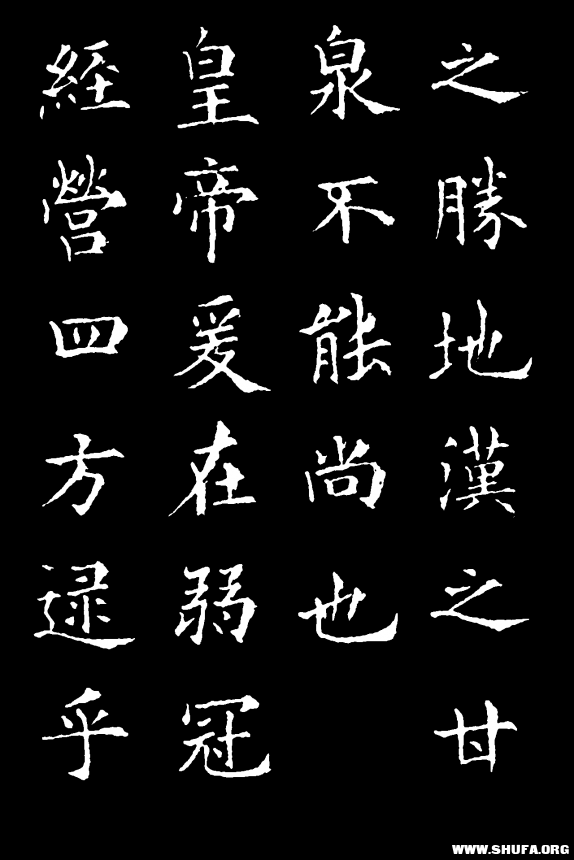 之勝地漢之甘
泉不能尚也
皇帝爰在弱冠
經營四方逯乎
WWW.SHUFA.ORG